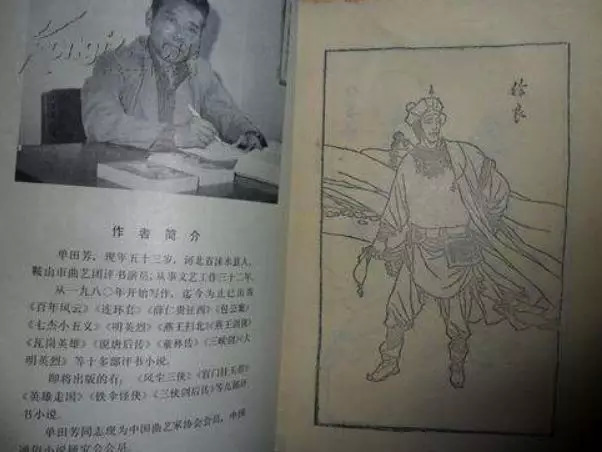 作者简介
单田芳,现年五十三岁,河北省涞水县人,
鞍山市曲艺团评书演员,从事文艺工作三十二年。
从一九八〇年开始写作,迄今为止已出版
《百年风云》《连环套》《薛仁贵征西》《包公案》
《七杰小五义》《明英烈》《燕王扫北》《燕王剑侠》
《瓦岗英雄》《说唐后传》《童林传》《三侠剑》《大
明英烈》等十多部评书小说。
即将出版的有:《风尘三侠》《宫门挂玉带》
《英雄走国》《铁伞怪侠》《三侠剑后传》等九部评
书小说。
单田芳同志现为中国曲艺家协会会员,中国
徐良